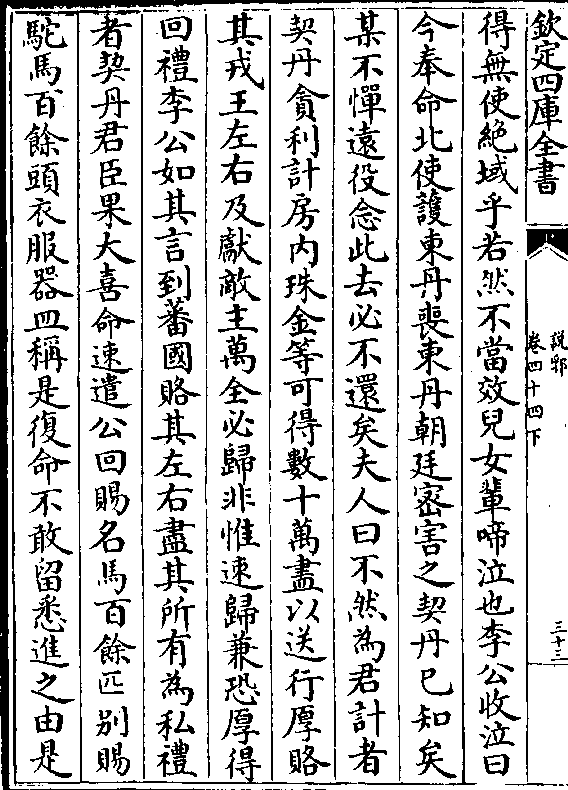 欽定四庫全書
說郛
卷四十四下
三十三
得無使絶域乎若然不當效兒女輩啼泣也李公收泣曰
今奉命北使護東丹喪東丹朝廷密害之契丹已知矣
某不憚遠役念此去必不還矣夫人曰不然為君計者
契丹貪利計房内珠金等可得數十萬盡以送行厚賂
其戎王左右及獻敵主萬全必歸非惟速歸兼恐厚得
回禮李公如其言到蕃國賂其左右盡其所有為私禮
者契丹君臣果大喜命速遣公回賜名馬百餘匹别賜
駝馬百餘頭衣服器皿稱是復命不敢留悉進之由是